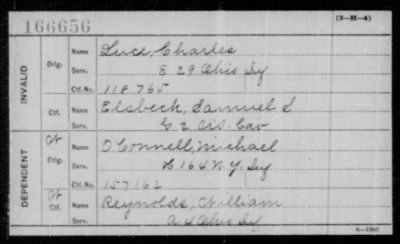 166656
(3-H-4)
INVALID
Orig.
Name Luce, Charles
Serv. E 29 Ohio Iy
Ctf. No. 118765
Ctf.
Name Elsbeck, Samuel S
Serv. G 2 Cav
DEPENDENT
Ctf
Orig.
Name O Connell, Michael
Serv. 164 N.Y. Iy
Ctf. No. 157162
Ctf
Ctf.
Name Reynolds, William
Serv. A 4 Ohio Iy